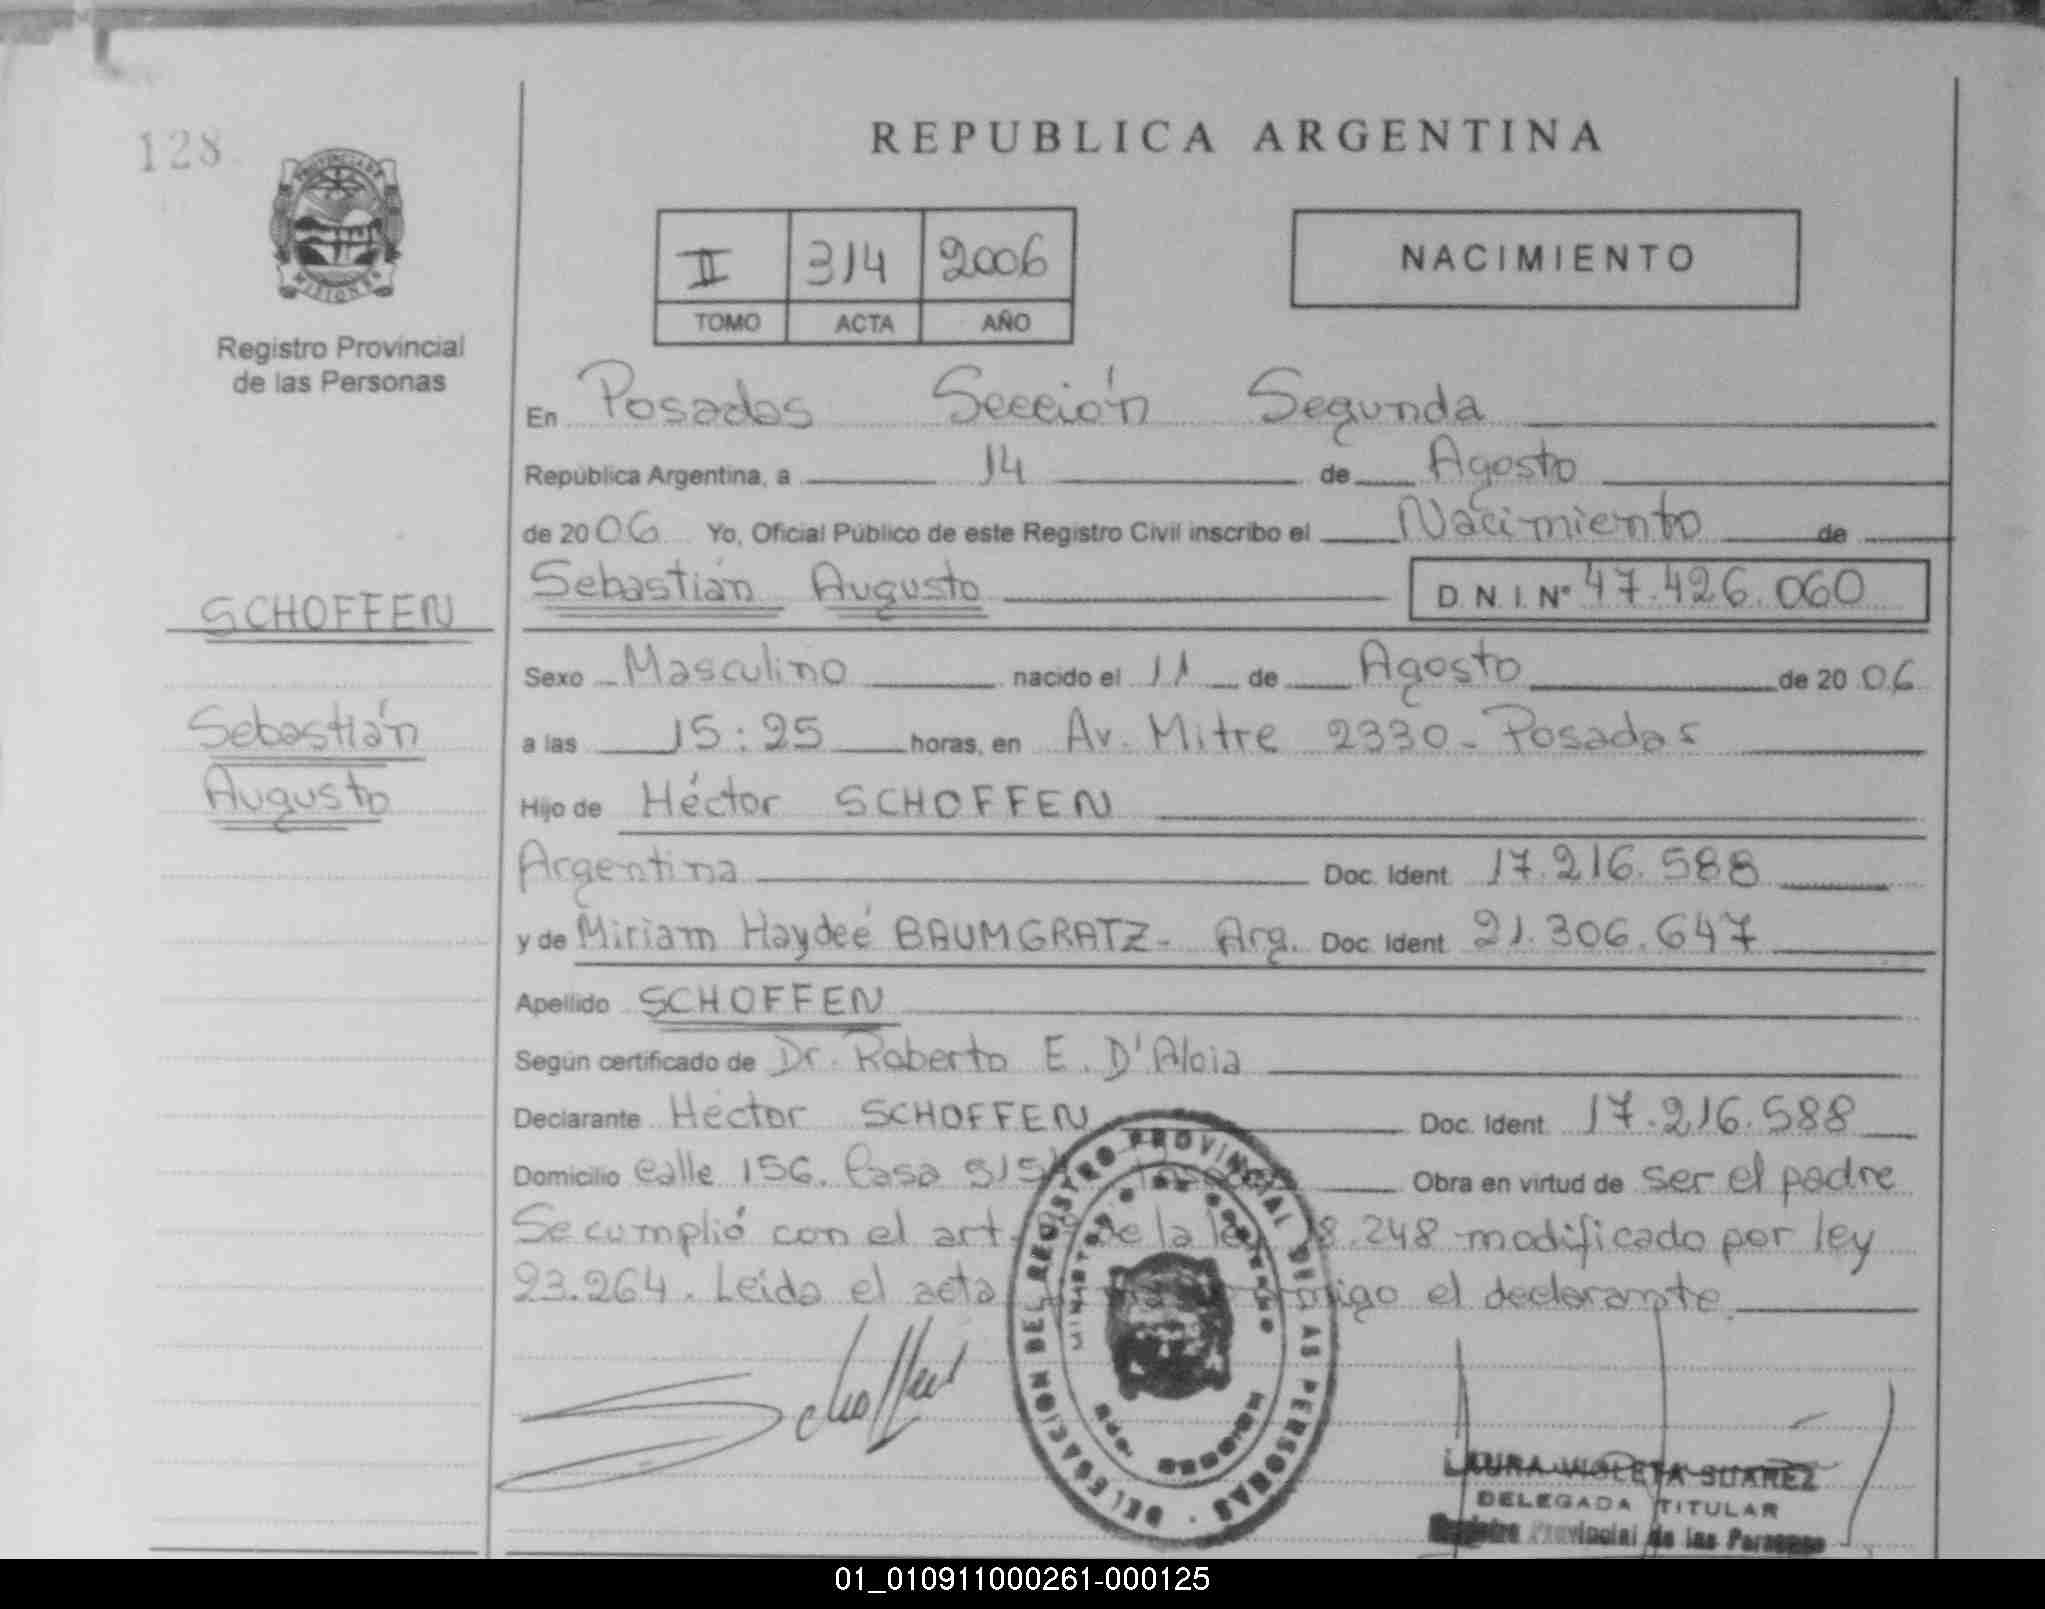 128
PROVINCIA DE
MISIONES
Registro Provincial
de las Personas
SCHOFFEN
Sebastián
Augusto
REPUBLICA ARGENTINA
II 314 2006
TOMO ACTA AÑO
NACIMIENTO
En Posadas Sección Segunda
República Argentina, a 14 de Agosto
de 2006 Yo, Oficial Público de este Registro Civil inscribo el Nacimiento de
Sebastián Augusto D.N.I. Nº 47.426.060
Sexo Masculino nacido el 11 de Agosto de 2006
a las 15:25 horas, en Av. Mitre 2330 - Posadas
Hijo de Héctor SCHOFFEN
Argentina Doc. Ident. 17.216.588
y de Miriam Haydeé BAUMGRATZ - Arg. Doc. Ident. 21.306.647
Apellido SCHOFFEN
Según certificado de Dr. Roberto E. D'Aloia
Declarante Héctor SCHOFFEN Doc. Ident. 17.216.588
Domicilio Calle 156. Casa Obra en virtud de ser el padre
Se cumplió con el art. de la ley 18.248 modificado por ley
23.264. Leída el acta el declarante
Schoffen
DELEGACION DEL REGISTRO PROVINCIAL DE LAS PERSONAS
MINISTERIO DE GOBIERNO
MISIONES
LAURA VIOLETA SUAREZ
DELEGADA TITULAR
Registro Provincial de las Personas
01_010911000261-000125